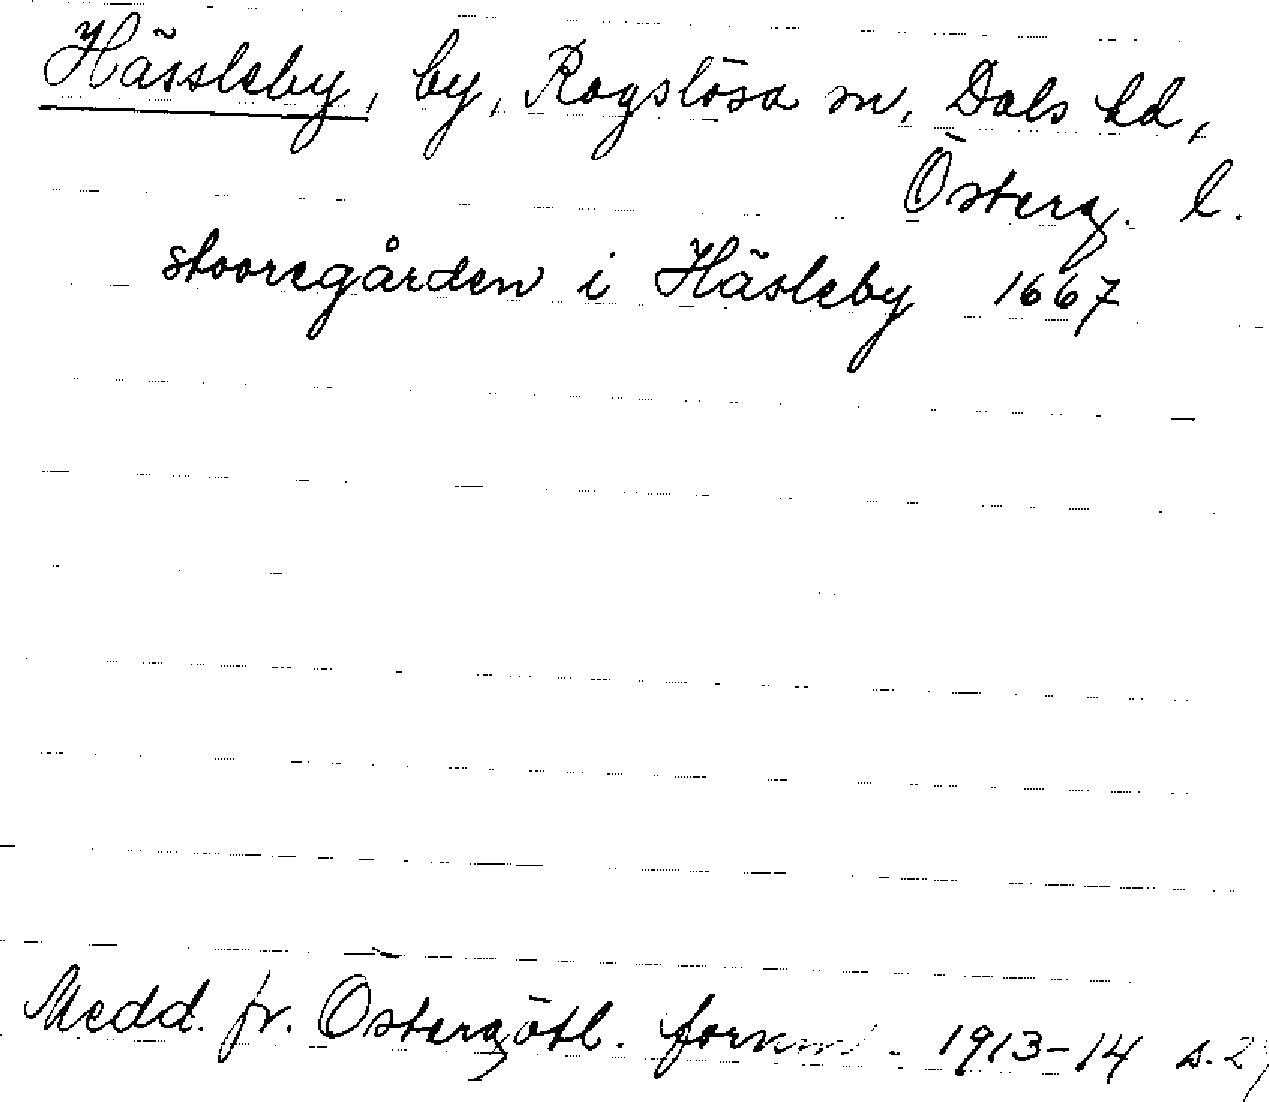 Hässleby, by, Rogslösa sn, Dals hd,
Österg. l.
stooregården i Häsleby 1667
Medd. fr. Östergötl. fornm. 1913-14 s.